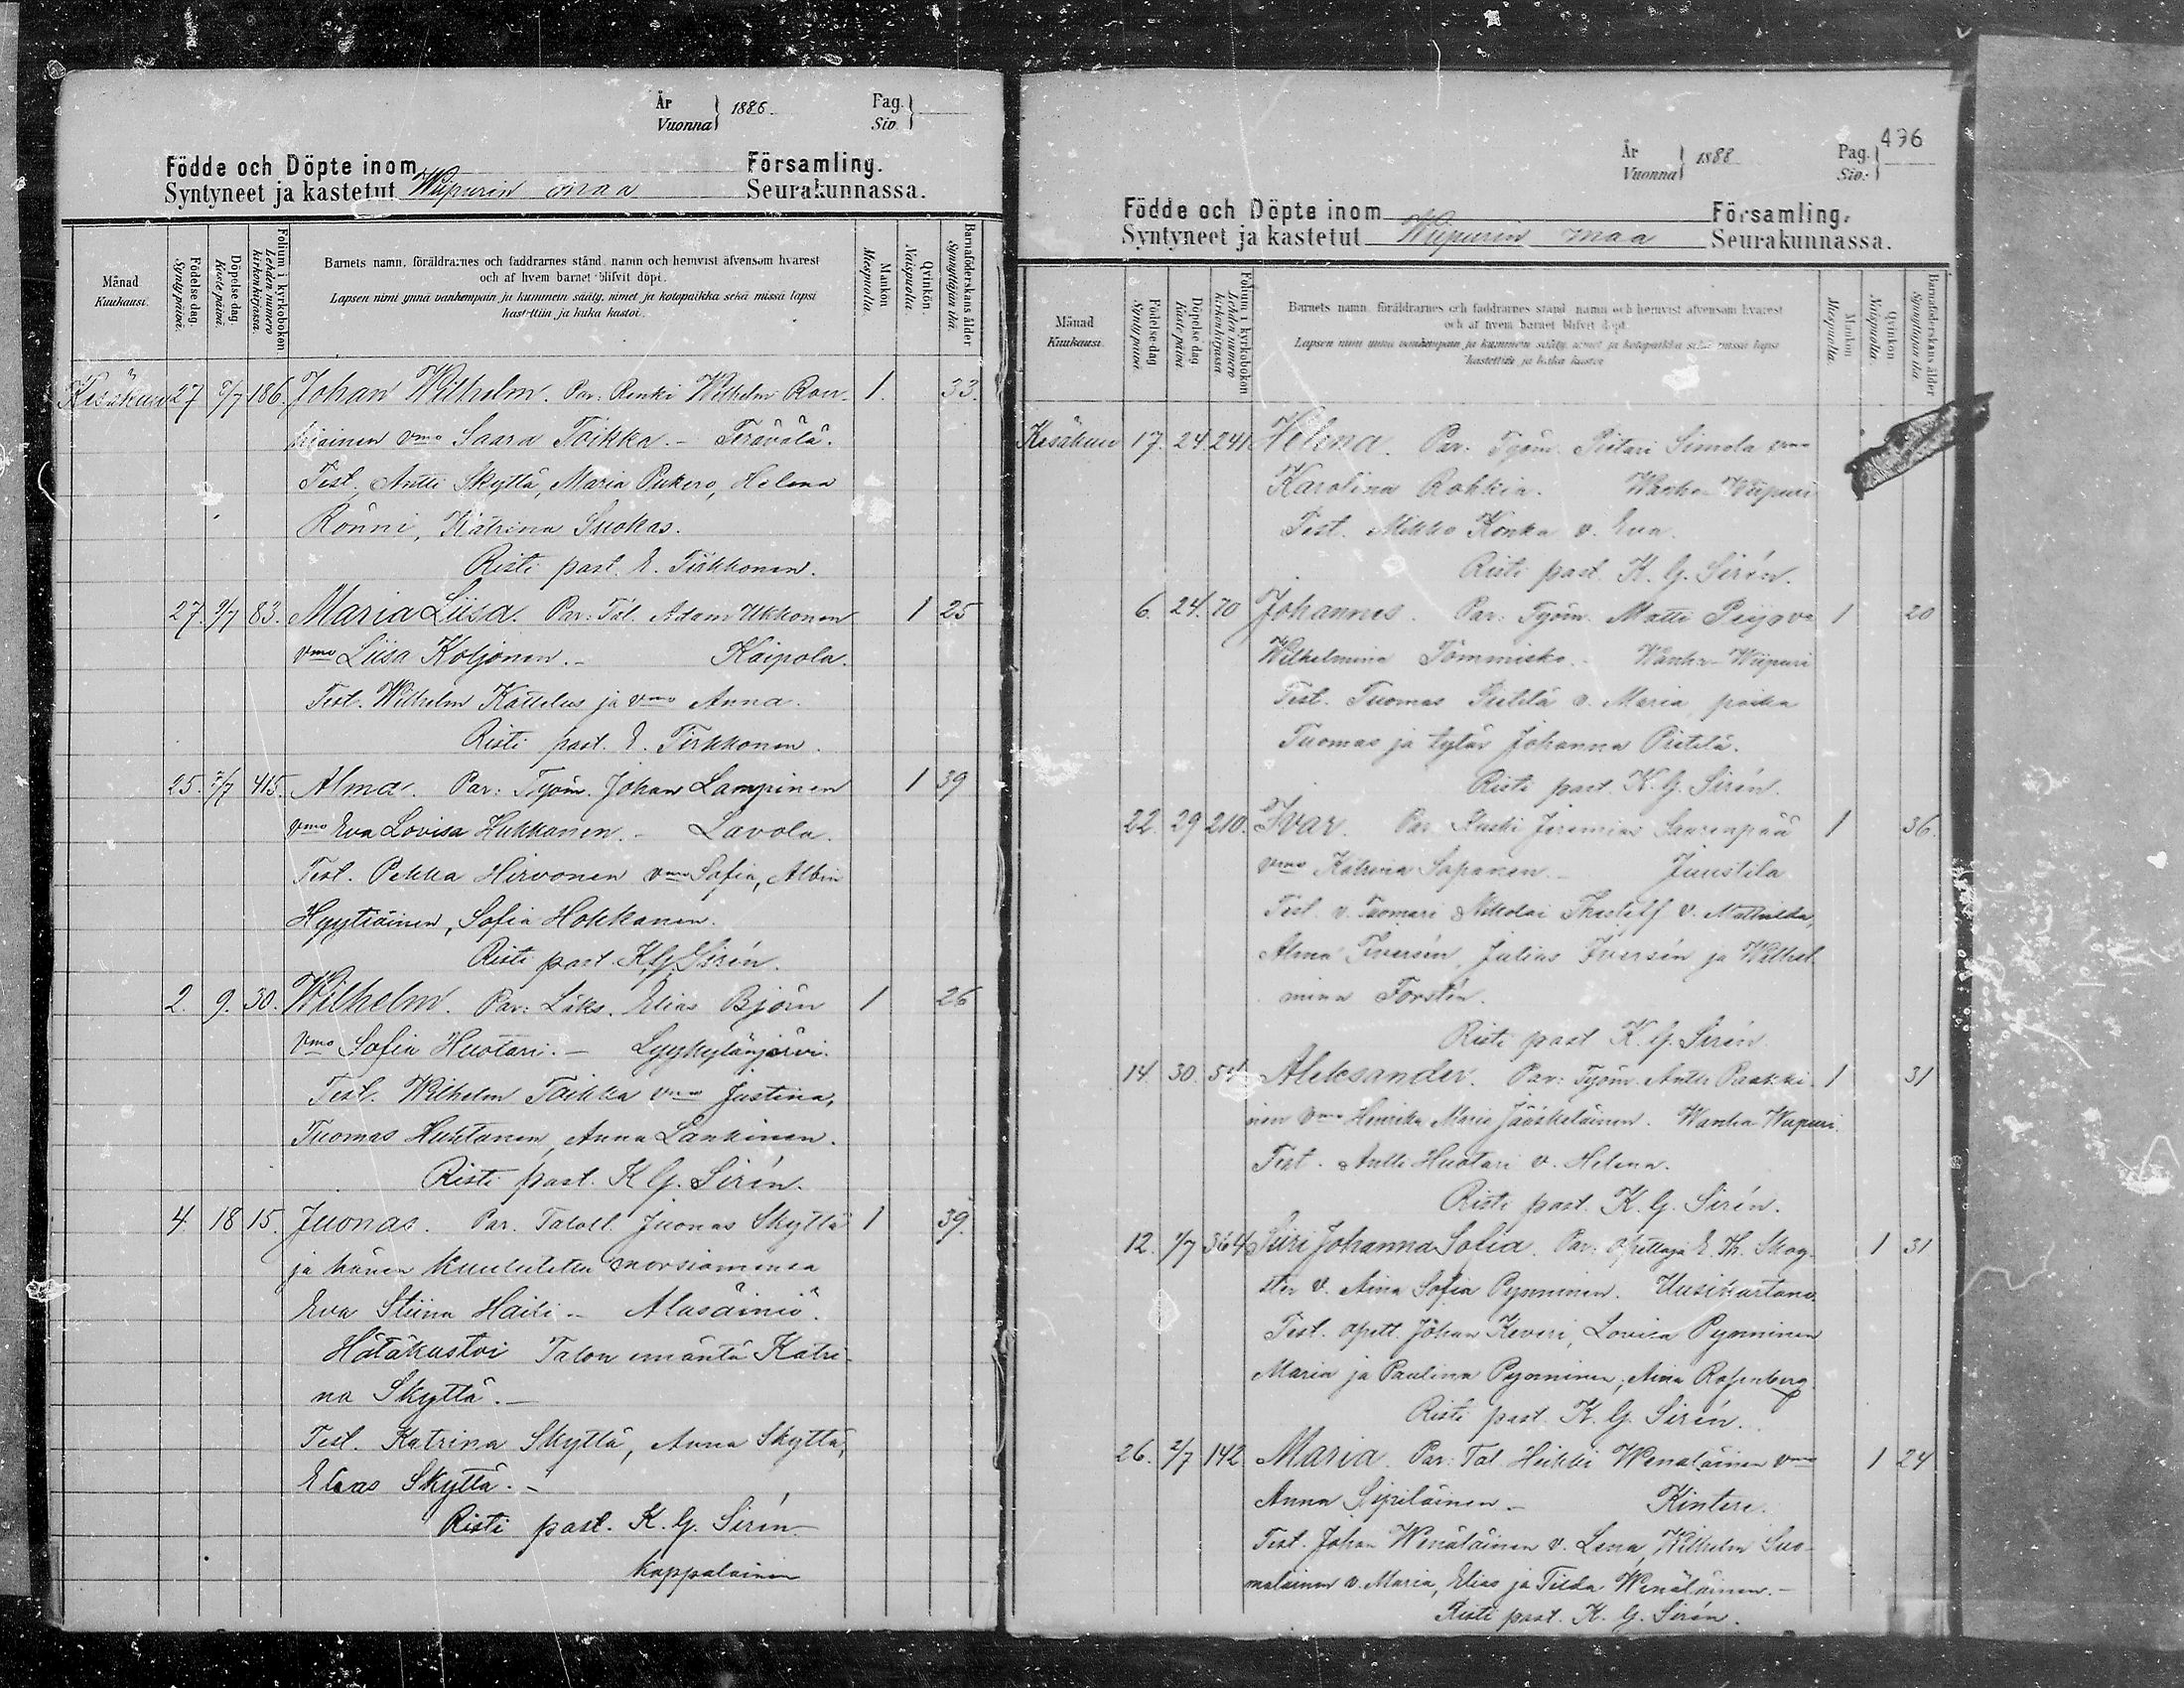 År
Vuonna } 1886.
Pag.
Siv. }
Födde och Döpte inom Församling.
Syntyneet ja kastetut Wiipurin maa Seurakunnassa.
Månad
Kuukausi.
Födelse dag.
Synty päivä.
Döpelse dag.
Kaste päivä.
Folium i kyrkoboken
Lehden numero kirkonkirjassa.
Barnets namn, föräldrarnes och faddrarnes stånd, namn och hemvist äfvensom hvarest
och af hvem barnet blifvit döpt.
Lapsen nimi ynnä vanhempain ja kummein sääty, nimet ja kotopaikka sekä missä lapsi
kastettiin ja kuka kastoi.
Mankön.
Miespuolta.
Qvinkön.
Naispuolta.
Barnaföderskans ålder
Synnyttäjän ikä.
Kesäkuu 27 186. Johan Wilhelm. Par: Renki Wilhelm Ron- 1. 33.
kiainen vmo Saara Toikka. - Terävälä.
Test. Antti Skyttä, Maria Pukero, Helena
Rönni, Katrina Suokas.
Risti past. E. Tirkkonen.
27. 9/7 83. Maria Liisa. Par: Tal. Adam Ukkonen 1 25
vmo Liisa Koljonen. - Kaipola.
Test. Wilhelm Kattelus ja vmo Anna.
Risti past. E. Tirkkonen.
25. 7/7 415. Alma. Par: Työm. Johan Lampinen 1 39
vmo Eva Lovisa Hukkanen. - Lavola.
Test. Pekka Hirvonen vmo Sofia, Albin
Hyytiäinen, Sofia Hokkanen.
Risti past. K. G. Sirén.
2. 9. 30. Wilhelm. Par: Läks. Elias Björn 1 26
vmo Sofia Huotari. - Lyykylänjärvi.
Test. Wilhelm Toikka vmo Justina,
Tuomas Huhtanen, Anna Lankinen.
Risti past. K G. Sirén.
4. 18 15. Juonas. Par. Taloll. Juonas Skyttä 1 39.
ja hänen kuulutettu morsiamensa
Eva Stiina Haili. - Alasäiniö.
Hätäkastoi Talon emäntä Katri-
na Skyttä. -
Test. Katrina Skyttä, Anna Skyttä,
Elias Skyttä. -
Risti past. K. G. Sirén.
kappalainen
496
År
Vuonna } 1888
Pag.
Siv. }
Födde och Döpte inom Församling.
Syntyneet ja kastetut Wiipurin maa Seurakunnassa.
Månad
Kuukausi.
Födelse dag
Synty päivä
Döpelse dag
Kaste päivä
Folium i kyrkoboken
Lehden numero kirkonkirjassa
Barnets namn, föräldrarnes och faddrarnes stånd, namn och hemvist äfvensom hvarest
och af hvem barnet blifvit döpt
Lapsen nimi ynnä vanhempain ja kummein sääty, nimet ja kotopaikka sekä missä lapsi
kastettiin ja kuka kastoi
Mankön
Miespuolta.
Qvinkön.
Naispuolta.
Barnaföderskans ålder
Synnyttäjän ikä
Kesäkuu 17. 24. 241. Helena. Par. Työm. Pietari Simola vmo
Karolina Rokkia. Wanha-Wiipuri
Test. Mikko Konka v. Eva.
Risti past. K. G. Sirén.
6. 24. 70 Johannes. Par: Työm. Matti 1 20
Wilhelmina Tömmiska. - Wanha-Wiipuri
Test. Tuomas Pietilä v. Maria, poika
Tuomas ja tytär Johanna Pietilä.
Risti past. K. G. Sirén.
22. 29 210. Ivar. Par. Kuski Jeremias Saarenpää 1 36.
vmo Katrina Sapanen. - Juustila
Test. v. Tuomari Nikolai v. Mathilda,
Alma Iversén, Julius Iversén ja Wilhel
mina Forstén.
Risti past K. G. Sirén
14. 30. Aleksander. Par: Työm. Antti Paakki- 1 31
nen vmo Henrika Maria Jääskeläinen. Wanha Wiipuri.
Test. Antti Huotari v. Helena.
Risti past. K. G. Sirén.
12. 1/7 364 Siiri Johanna Sofia. Par: Opettaja E. Th. Skog- 1 31
ster v. Aina Sofia Pynninen. Uusikartano.
Test. opett. Johan Keveri, Lovisa Pynninen
Maria ja Paulina Pynninen, Aina Rosenberg.
Risti past. K. G. Sirén.
26. 2/7 142. Maria. Par: Tal. Heikki Wenäläinen vmo 1 24
Anna Sipiläinen. - Kintere.
Test. Johan Wenäläinen v. Lena, Wilhelm Suo-
malainen v. Maria, Elias ja Tilda Wenäläinen. -
Risti past. K. G. Sirén.